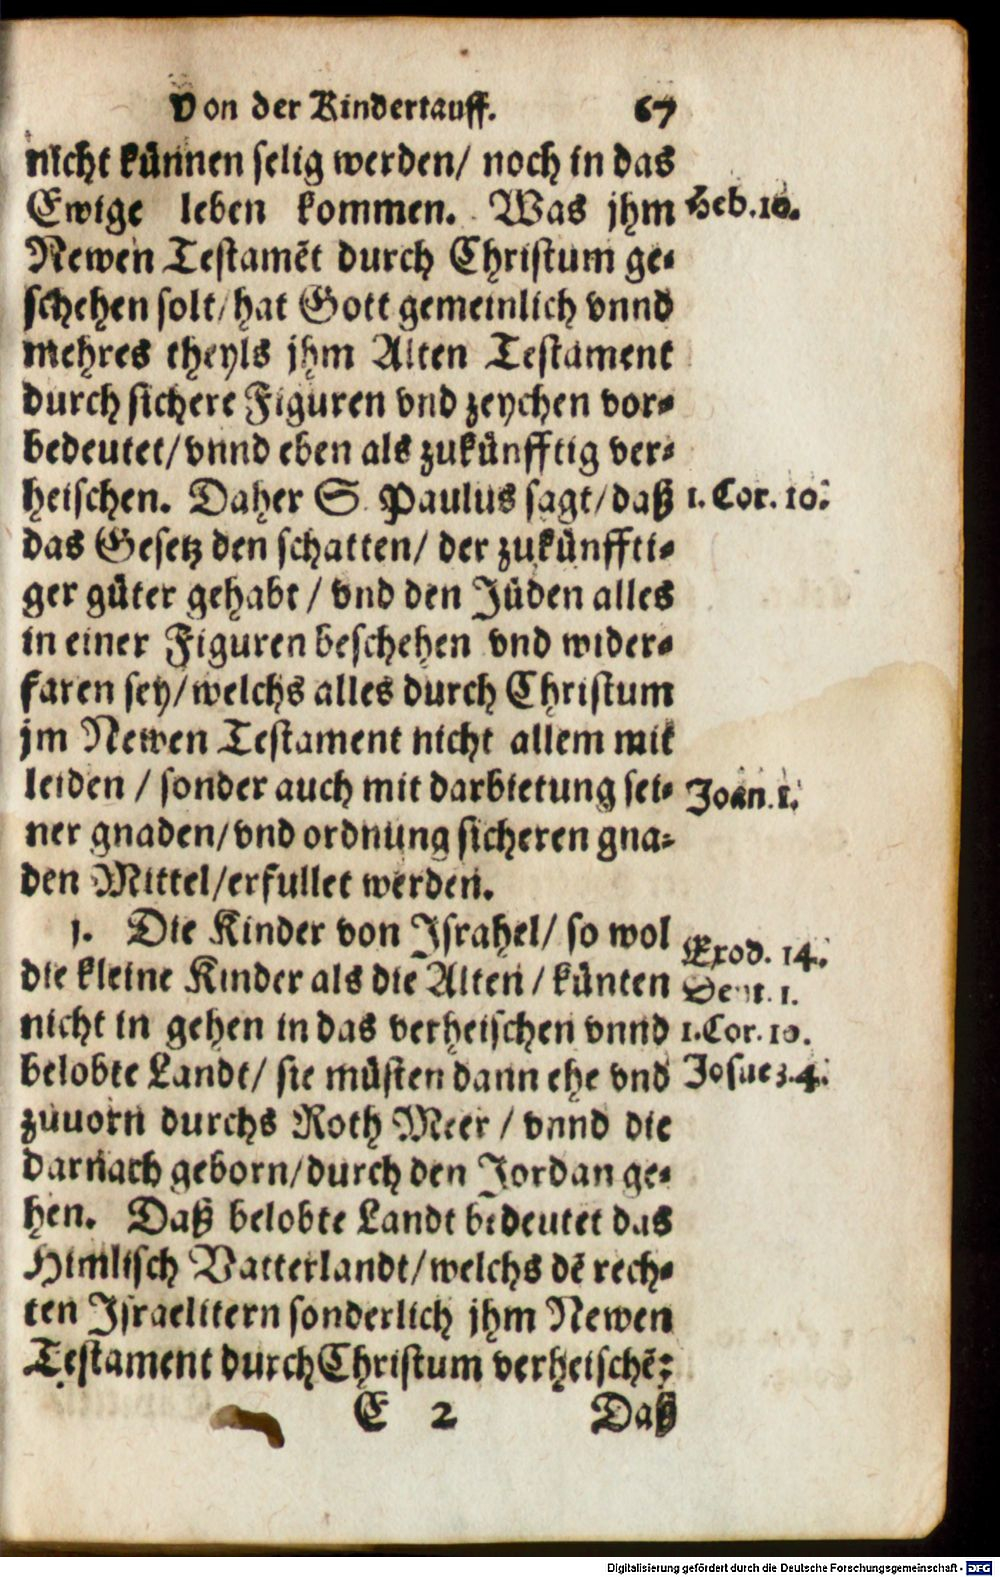 Von der Kindertauff. 67
nicht künnen selig werden/ noch in das
Ewige leben kommen. Was jhm
Heb. 10.
Newen Testamẽt durch Christum ge-
schehen solt/ hat Gott gemeinlich vnnd
mehres theyls jhm Alten Testament
durch sichere Figuren vnd zeychen vor-
bedeutet/ vnnd eben als zukünfftig ver-
heischen. Daher S. Paulus sagt/ daß
1. Cor. 10.
das Gesetz den schatten/ der zukünffti-
ger güter gehabt/ vnd den Jüden alles
in einer Figuren beschehen vnd wider-
faren sey/ welchs alles durch Christum
jm Newen Testament nicht allem mit
leiden/ sonder auch mit darbietung sei-
Joan. 1.
ner gnaden/ vnd ordnung sicheren gna-
den Mittel/ erfullet werden.
1. Die Kinder von Israhel/ so wol
Exod. 14.
die kleine Kinder als die Alten/ künten
Deut. 1.
nicht in gehen in das verheischen vnnd
1. Cor. 10.
belobte Landt/ sie müsten dann ehe vnd
Josue 3. 4.
zuuorn durchs Roth Meer/ vnnd die
darnach geborn/ durch den Jordan ge-
hen. Daß belobte Landt bedeutet das
Himlisch Vatterlandt/ welchs dẽ rech-
ten Israelitern sonderlich jhm Newen
Testament durch Christum verheischẽ:
E 2 Daß
Digitalisierung gefördert durch die Deutsche Forschungsgemeinschaft - DFG